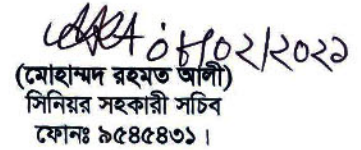 ০৮/০২/২০২১
(মোহাম্মদ রহমত আলী)
সিনিয়র সহকারী সচিব
ফোনঃ ৯৫৪৫৪৩১।